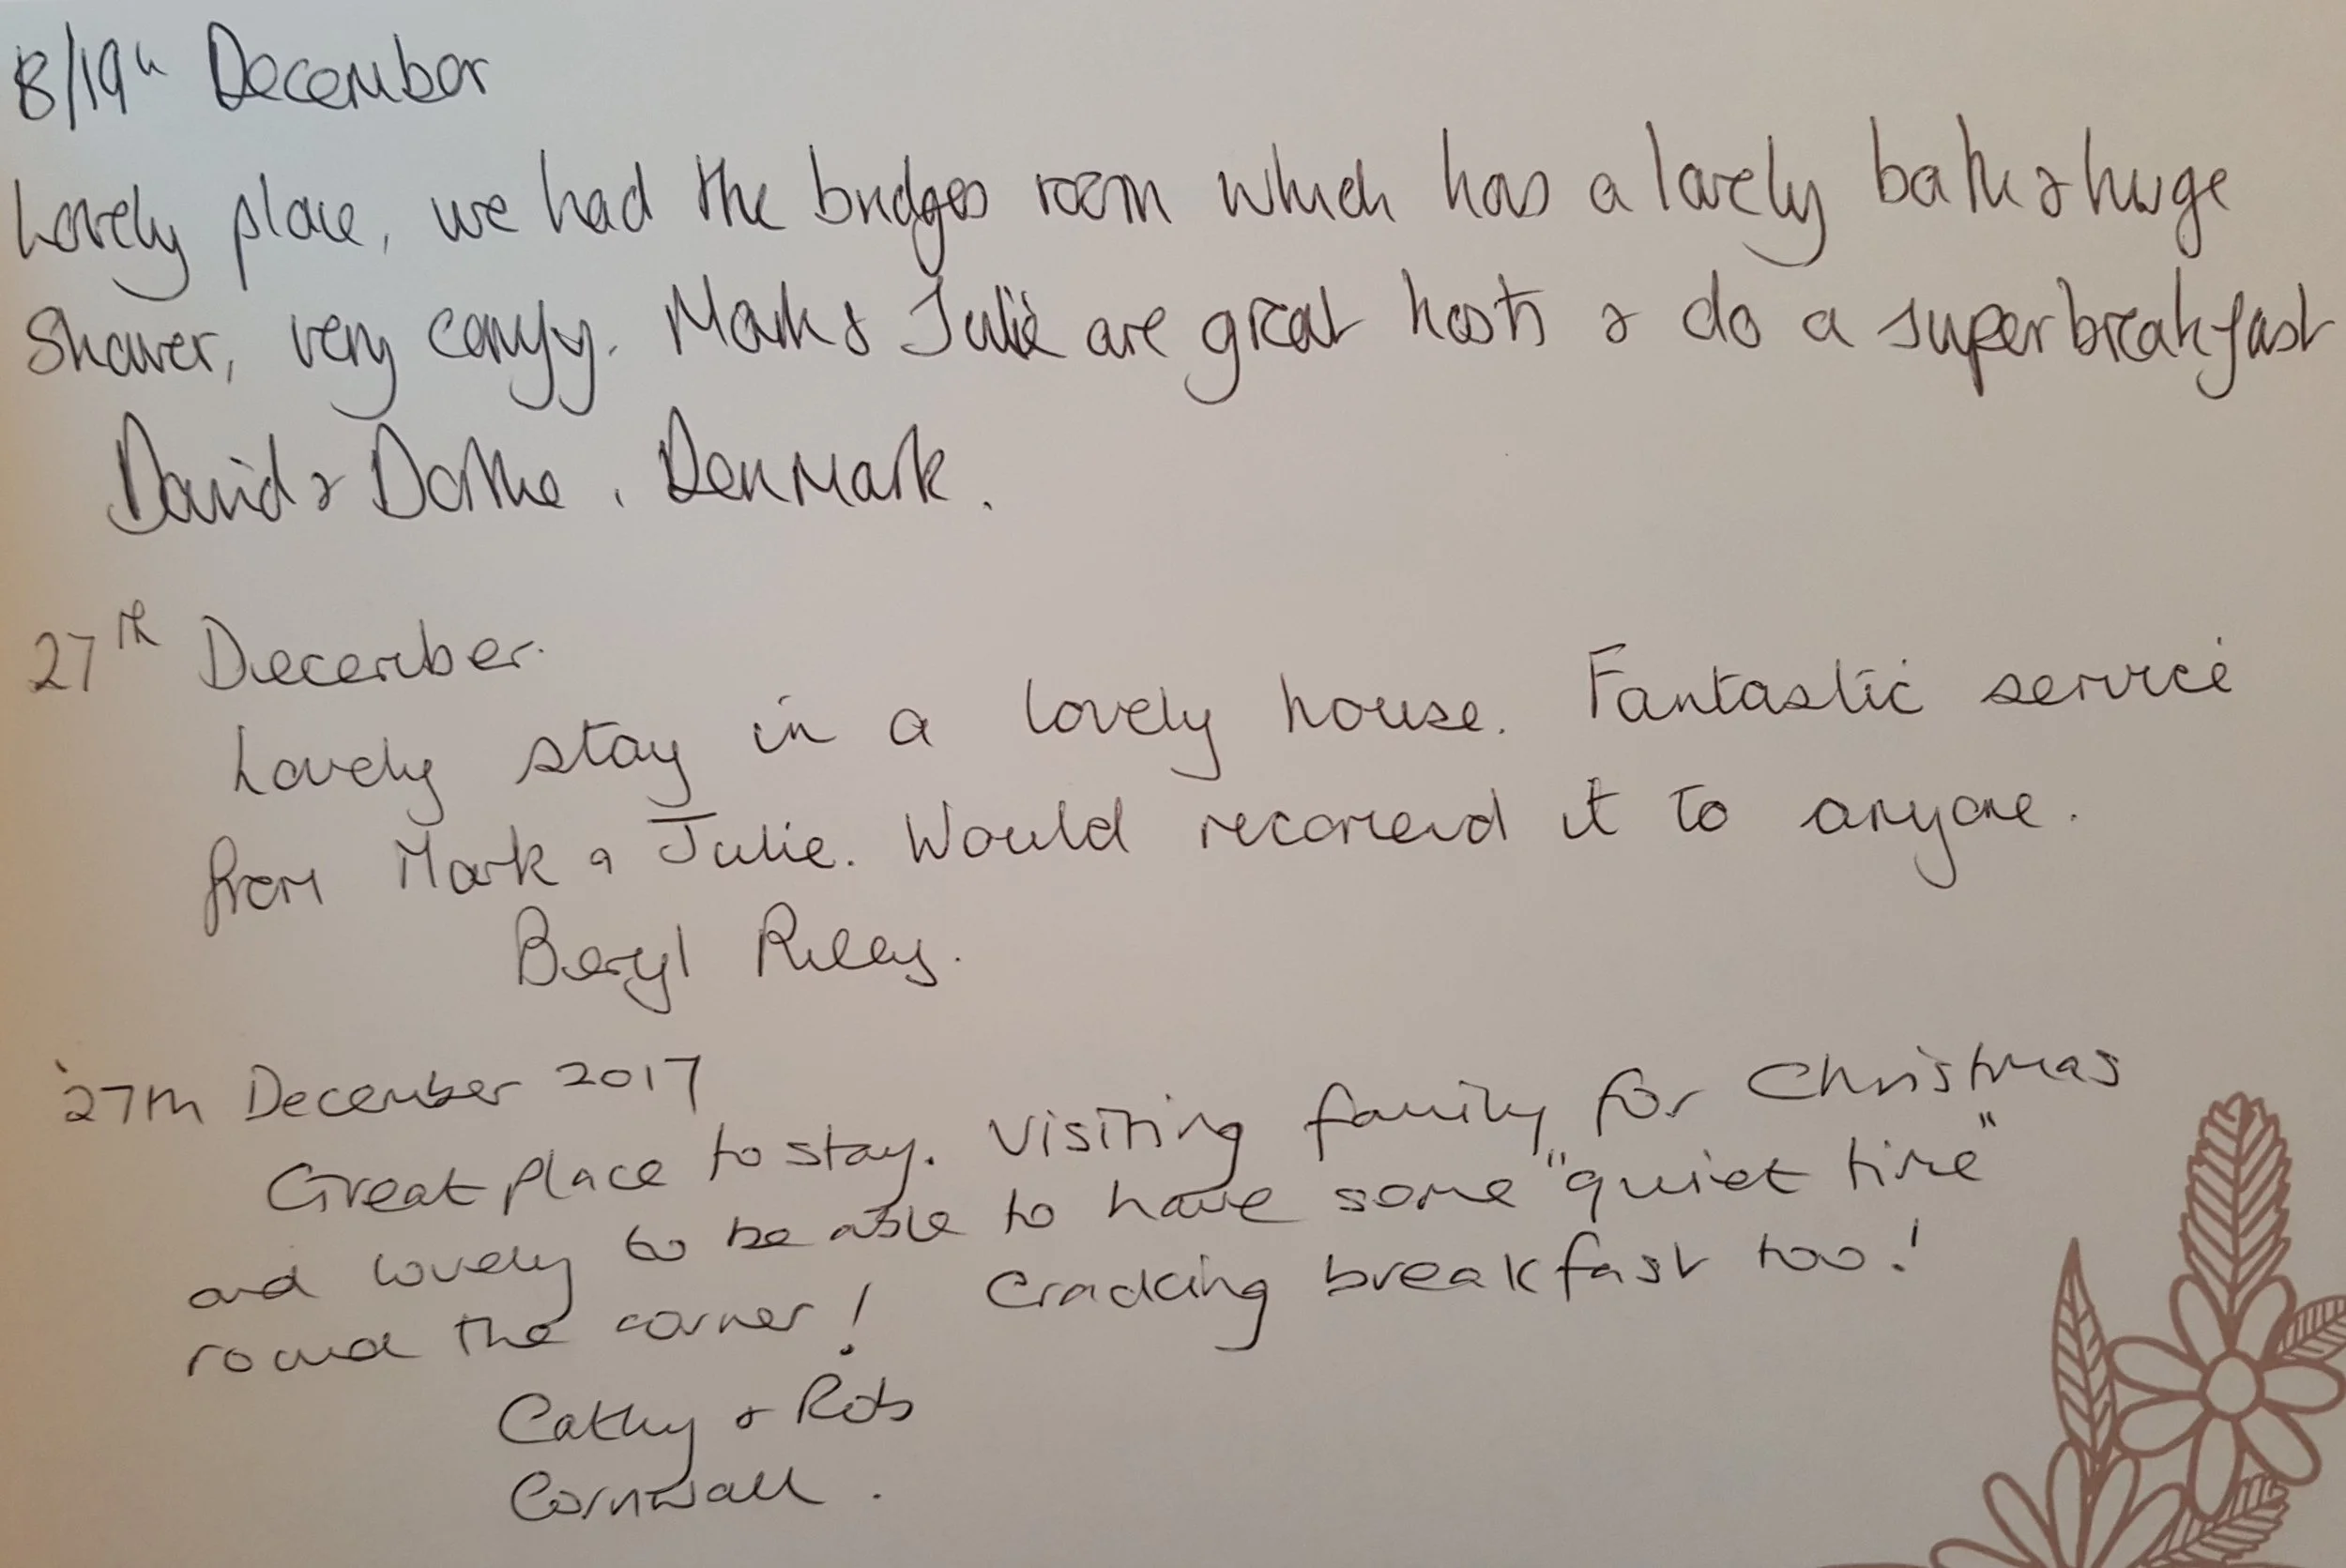 8/19th December
Lovely place, we had the bridges room which has a lovely bath & huge
shower, very comfy. Mark & Julie are great hosts & do a super breakfast
David & Dorthe, Denmark.
27th December.
Lovely stay in a lovely house. Fantastic service
from Mark & Julie. Would recomend it to anyone.
Beryl Riley.
27th December 2017
Great place to stay. Visiting family for Christmas
and lovely to be able to have some "quiet time"
round the corner! Cracking breakfast too!
Cathy & Rob
Cornwall.